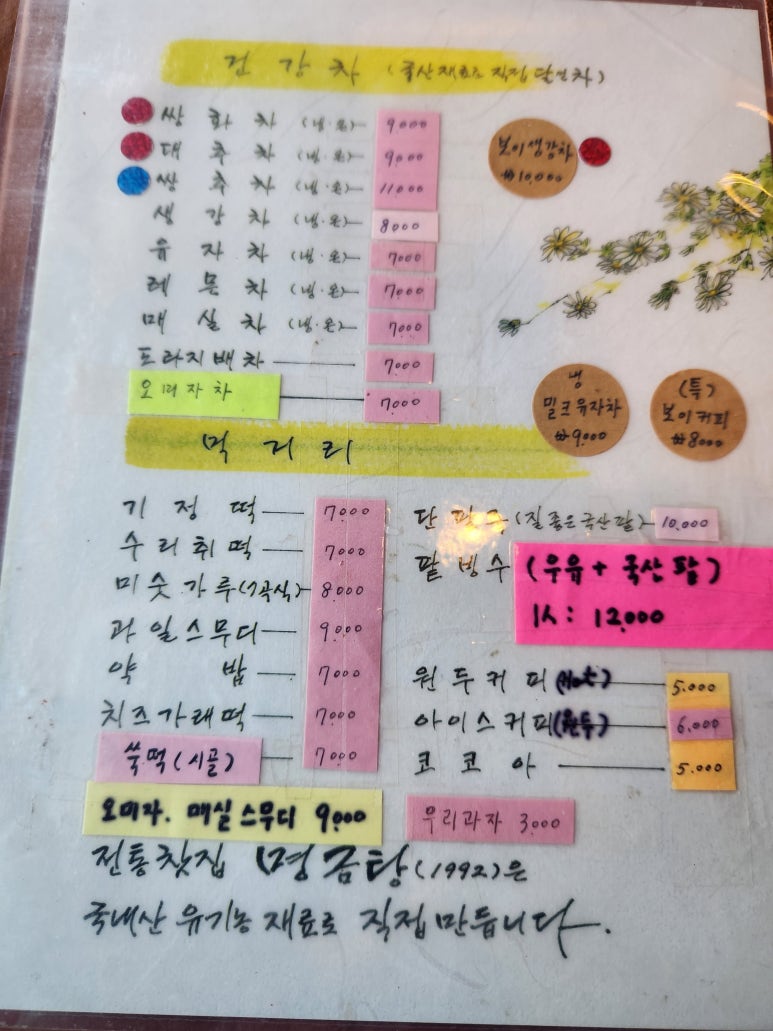 건강차 (국산재료로 직접 달인차)
쌍화차 (냉·온) 9000
대추차 (냉·온) 9000
쌍추차 (냉·온) 11000
생강차 (냉·온) 8000
유자차 (냉·온) 7000
레몬차 (냉·온) 7000
매실차 (냉·온) 7000
도라지배차 7000
오미자차 7000
보이생강차
₩10,000
냉
밀크유자차
₩9,000
(특)
보이커피
₩8000
먹거리
기정떡 7000
수리취떡 7000
미숫가루(7곡식) 8000
과일스무디 9000
약밥 7000
치즈가래떡 7000
쑥떡(시골) 7000
오미자. 매실스무디 9,000
단팥죽 (질좋은국산팥) 10,000
팥빙수 (우유+국산팥)
1人: 12,000
원두커피(Hot) 5.000
아이스커피(원두) 6.000
코코아 5.000
우리과자 3000
전통찻집 명금탕(1992)은
국내산 유기농 재료로 직접만듭니다.